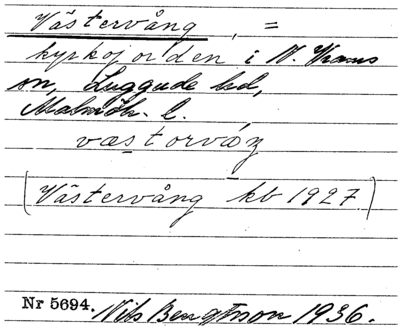 Västervång, =
kyrkojorden i N. Vrams
sn, Luggude hd,
Malmöh. l.
væstorváŋ
(Västervång kb 1927.)
Nr 5694. Nils Bengtsson 1936.